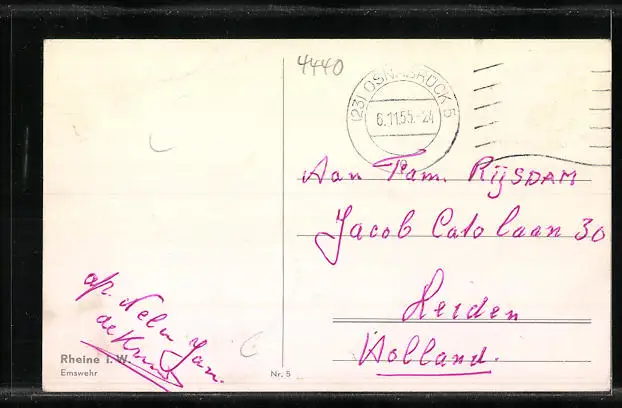 4440
(23) OSNABRÜCK 5
6.11.55.-24
Aan Fam. RIJSDAM
Jacob Catslaan 30
Leiden
Holland.
Jan.
Rheine i. W.
Emswehr
Nr. 5